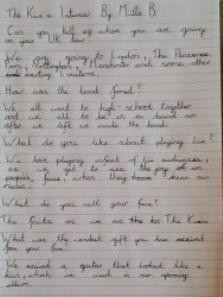 The Kiwis Interview By Mille B
Can you tell us where you are going
on you UK tour
We going to London, The
Nottingham, Manchester and some other
exciting locations.
How was the band formed?
We all went to high-school together
and we all to be in a band so
after we left we made the band.
What do you like about playing live?
We love playing infront of live audiences,
as we get to see the joy on
peoples, faces, when they hear our
music.
What do you call your fans?
The fruits as we are the The Kiwis
What was the weirdest gift you have recived
from your fans?
We recived a guitar that looked like a
kiwi, which we used in our upcoming
album.